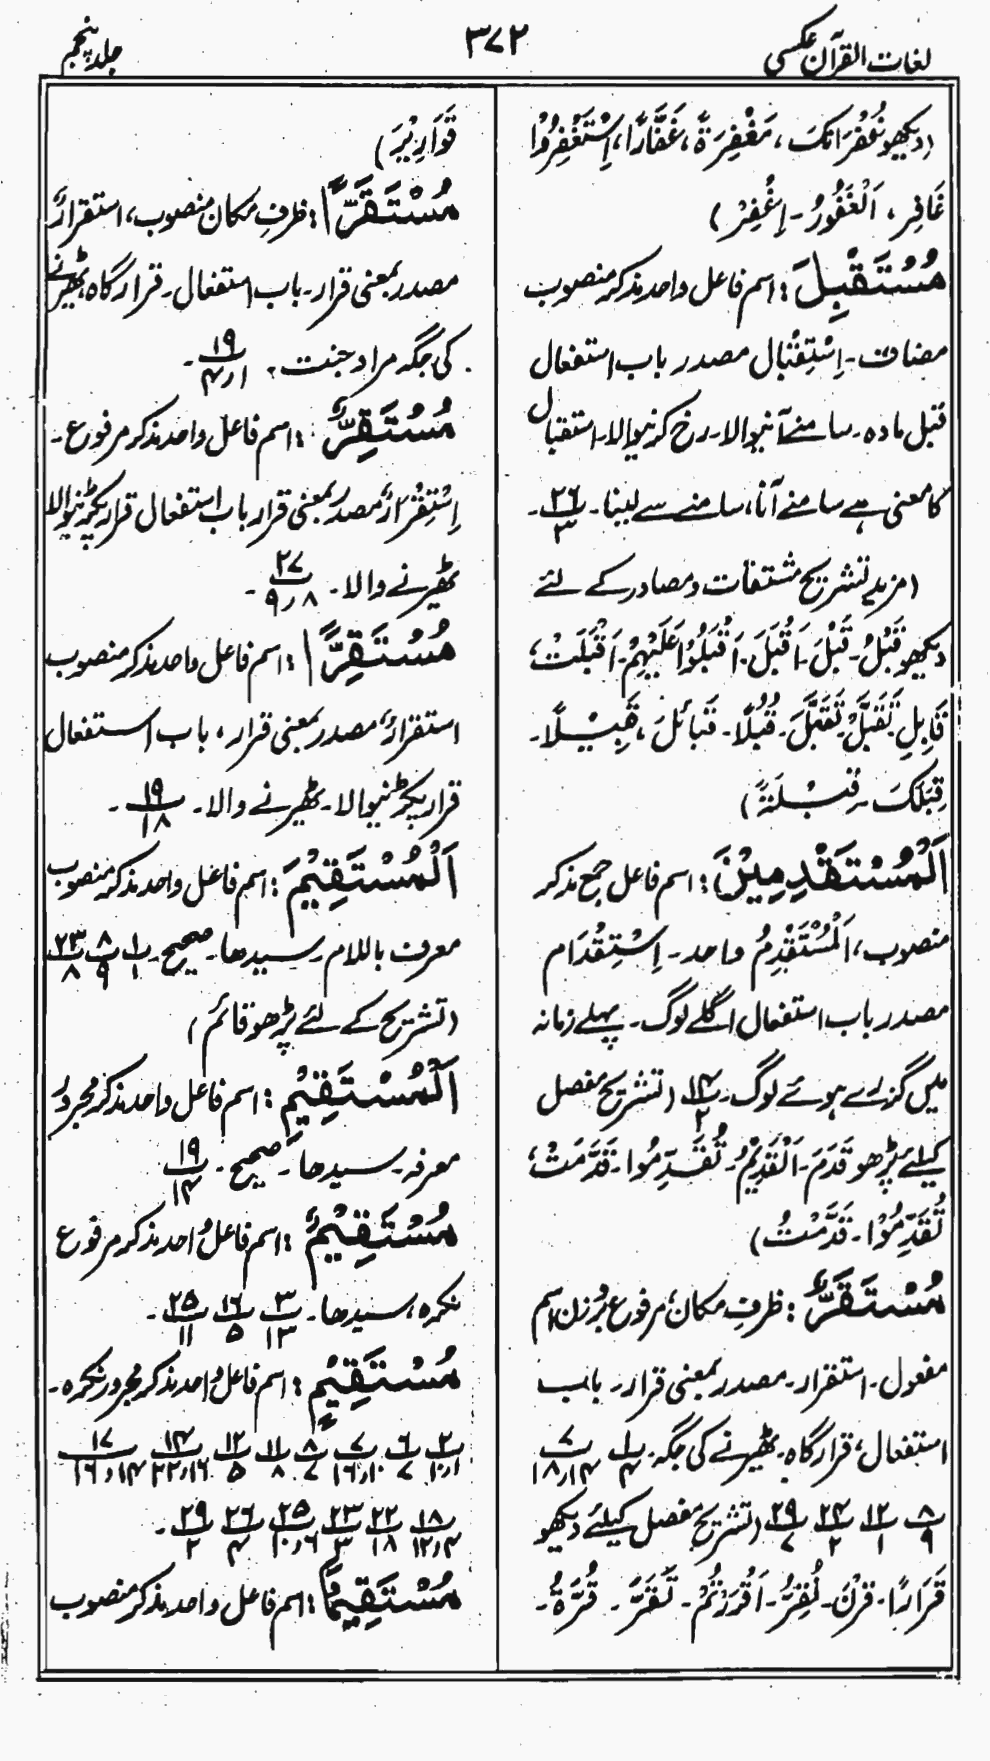 لغات القرآن عکسی
۳۷۲
جلد پنجم
(دیکھو غُفْرَانَکَ، مَغْفِرَۃً، غَفَّارًا، اِسْتَغْفِرُوْا
غَافِرِ، اَلْغَفُوْرُ۔ اِغْفِرْ)
مُسْتَقْبِلَ: اسم فاعل واحد مذکر منصوب
مضاف۔ اِسْتِقْبَال مصدر باب استفعال
قبل مادہ۔ سامنے آنیوالا۔ رخ کرنیوالا۔ استقبال
کا معنی ہے سامنے آنا، سامنے سے لینا۔ ۲۶/۳۔
(مزید تشریح مشتقات و مصادر کے لئے
دیکھو قَبْلُ۔ قَبْلَ۔ اَقْبَلَ۔ اَقْبَلُوْا عَلَیْہِمْ۔ اَقْبَلَتْ،
قَابِلِ۔ تَقَبَّلْ۔ تَقَبَّلَ۔ قُبُلًا۔ قبائل، قَبِیْلًا۔
قِبَلَکَ۔ قِبْلَۃً)
اَلْمُسْتَقْدِمِیْنَ: اسم فاعل جمع مذکر
منصوب، اَلْمُسْتَقْدِمُ واحد۔ اِسْتِقْدَام
مصدر باب استفعال اگلے لوگ۔ پہلے زمانہ
میں گزرے ہوئے لوگ۔ ۱۴/۲ (تشریح مفصل
کیلئے پڑھو قَدَمَ۔ اَلْقَدِیْمُ۔ تُقَدِّمُوا۔ قَدَّمَتْ،
تُقَدِّمُوْا۔ قَدَّمْتُ)
مُسْتَقَرٌّ: ظرفِ مکان، مرفوع بروزن اسم
مفعول۔ استقرار۔ مصدر بمعنی قرار۔ باب
استفعال، قرار گاہ۔ ٹھیرنے کی جگہ۔ ۱/۴ ۷/۱۴؍۱۸
۸/۹ ۱۲/۱ ۲۴/۲ ۲۹/۷ (تشریح مفصل کیلئے دیکھو
قَرَارًا۔ قَرْنَ۔ نُقِرُّ۔ اَقْرَرْتُمْ۔ تَقَرَّ۔ قُرَّۃُ۔
قَوَارِیْرَ)
مُسْتَقَرًّا: ظرفِ مکان منصوب، استقرارٌ
مصدر بمعنی قرار۔ باب استفعال۔ قرار گاہ، ٹھیرنے
کی جگہ مراد جنت۔ ۱۹/۱؍۴۔
مُسْتَقِرٌّ: اسم فاعل واحد مذکر مرفوع۔
اِسْتِقْرَارٌ مصدر بمعنی قرار باب استفعال قرار پکڑنیوالا
ٹھیرنے والا۔ ۲۷/۸؍۹۔
مُسْتَقِرًّا: اسم فاعل واحد مذکر منصوب
استقرارٌ، مصدر بمعنی قرار، باب استفعال
قرار پکڑنیوالا۔ ٹھیرنے والا۔ ۱۹/۱۸۔
اَلْمُسْتَقِیْمَ: اسم فاعل واحد مذکر منصوب
معرف باللام۔ سیدھا۔ صحیح۔ ۱/۱ ۸/۹ ۲۳/۸
(تشریح کے لئے پڑھو قائم)
اَلْمُسْتَقِیْمِ: اسم فاعل واحد مذکر مجرور
معرفہ۔ سیدھا۔ صحیح۔ ۱۹/۱۴
مُسْتَقِیْمٌ: اسم فاعل واحد مذکر مرفوع
نکرہ، سیدھا۔ ۳/۱۳ ۱۶/۵ ۲۵/۱۱۔
مُسْتَقِیْمٍ: اسم فاعل واحد مذکر مجرور نکرہ۔
۲/۱؍۱۰ ۶/۷ ۷/۱۰؍۱۶ ۸/۷ ۱۱/۸ ۱۲/۵ ۱۴/۱۶؍۲۲ ۱۷/۱۴؍۱۶
۱۸/۴؍۱۲ ۲۲/۱۸ ۲۳/۳ ۲۵/۶؍۱۰ ۲۶/۴ ۲۹/۲۔
مُسْتَقِیْمًا: اسم فاعل واحد مذکر منصوب